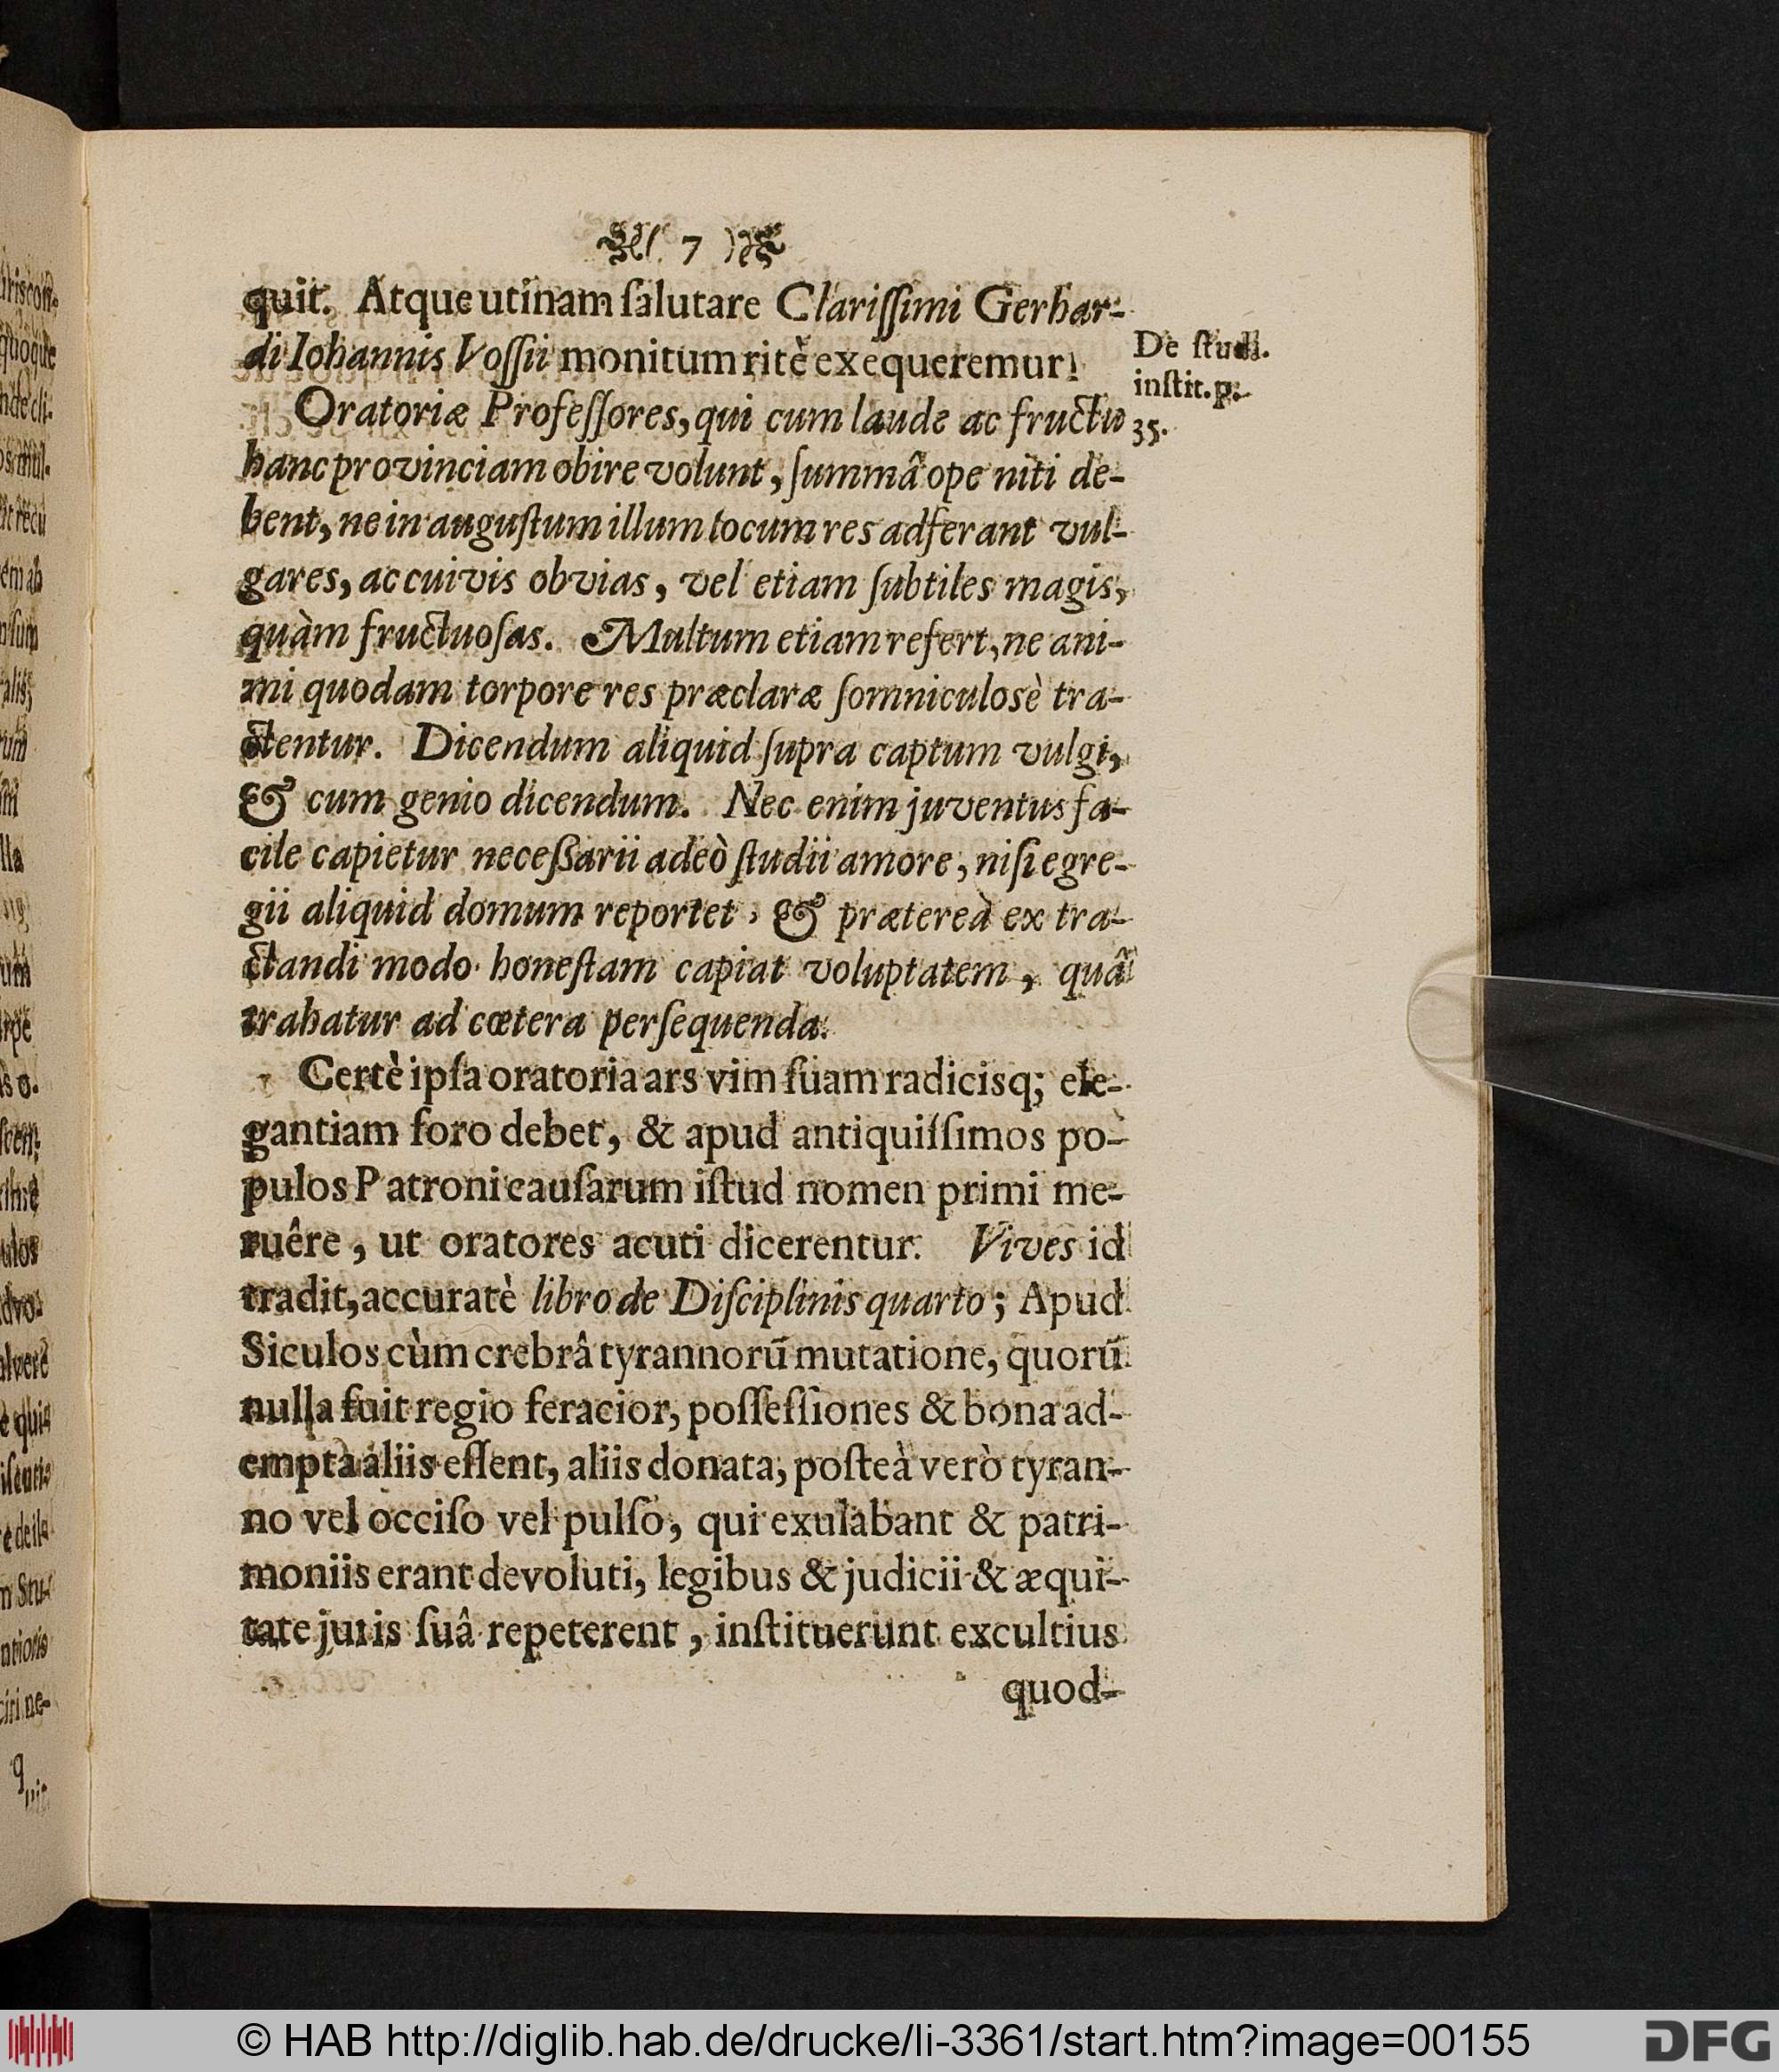 7
quit. Atque utinam ſalutare Clariſſimi Gerhar-
di Iohannis Voſſii monitum ritè exequeremur!
De ſtudi.
inſtit. p.
35.
Oratoriæ Profeſſores, qui cum laude ac fructu
hanc provinciam obire volunt, ſummâ ope niti de-
bent, ne in auguſtum illum locum res adferant vul-
gares, ac cuivis obvias, vel etiam ſubtiles magis,
quàm fructuoſas. Multum etiam refert, ne ani-
mi quodam torpore res præclaræ ſomniculosè tra-
ctentur. Dicendum aliquid ſupra captum vulgi,
& cum genio dicendum. Nec enim juventus fa-
cile capietur neceßarii adeò ſtudii amore, niſi egre-
gii aliquid domum reportet, & prætereà ex tra-
ctandi modo honeſtam capiat voluptatem, quâ
trahatur ad cœtera perſequenda.
Certè ipſa oratoria ars vim ſuam radicisq; ele-
gantiam foro debet, & apud antiquiſſimos po-
pulos Patroni cauſarum iſtud nomen primi me-
ruêre, ut oratores acuti dicerentur. Vives id
tradit, accuratè libro de Diſciplinis quarto; Apud
Siculos cùm crebrâ tyrannorũ mutatione, quorũ
nulla fuit regio feracior, poſſeſſiones & bona ad-
empta aliis eſſent, aliis donata, poſteà verò tyran-
no vel occiſo vel pulſo, qui exulabant & patri-
moniis erant devoluti, legibus & judicii & æqui-
tate juris ſuâ repeterent, inſtituerunt excultius
quod-
© HAB http://diglib.hab.de/drucke/li-3361/start.htm?image=00155
DFG